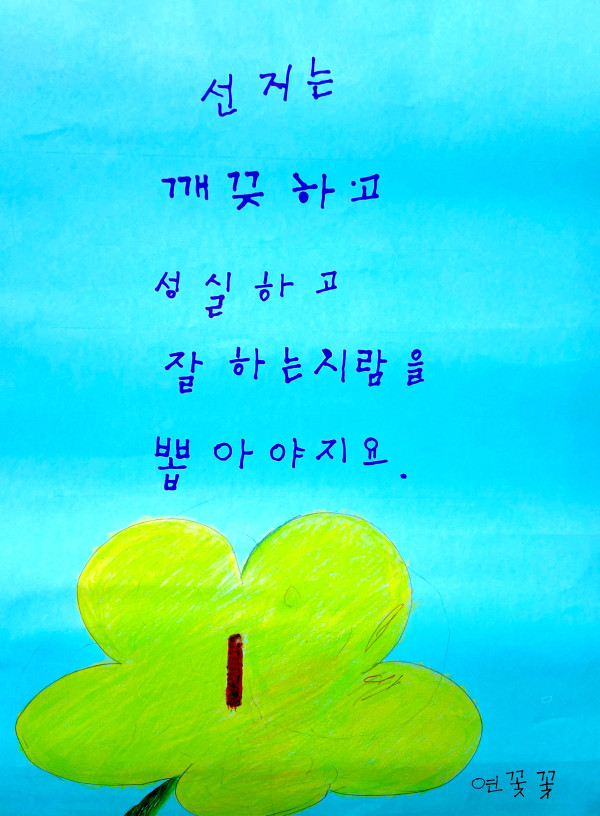 선지는
깨끚하고
성실하고
잘하는시람을
뽑아야지요.
연꽃꽃